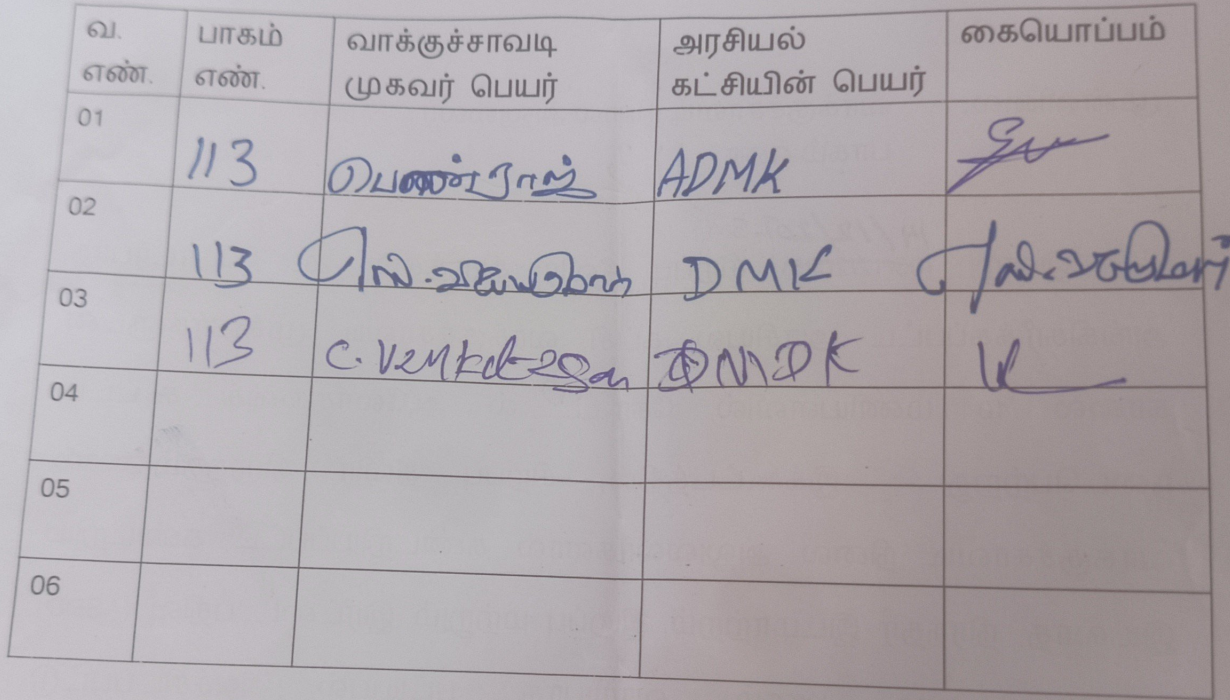 வ. எண். பாகம் எண். வாக்குச்சாவடி முகவர் பெயர் அரசியல் கட்சியின் பெயர் கையொப்பம்
01 113 பொண்ராஜ் ADMK
02 113 DMK
03 113 C. Venkatesan DMDK
04
05
06